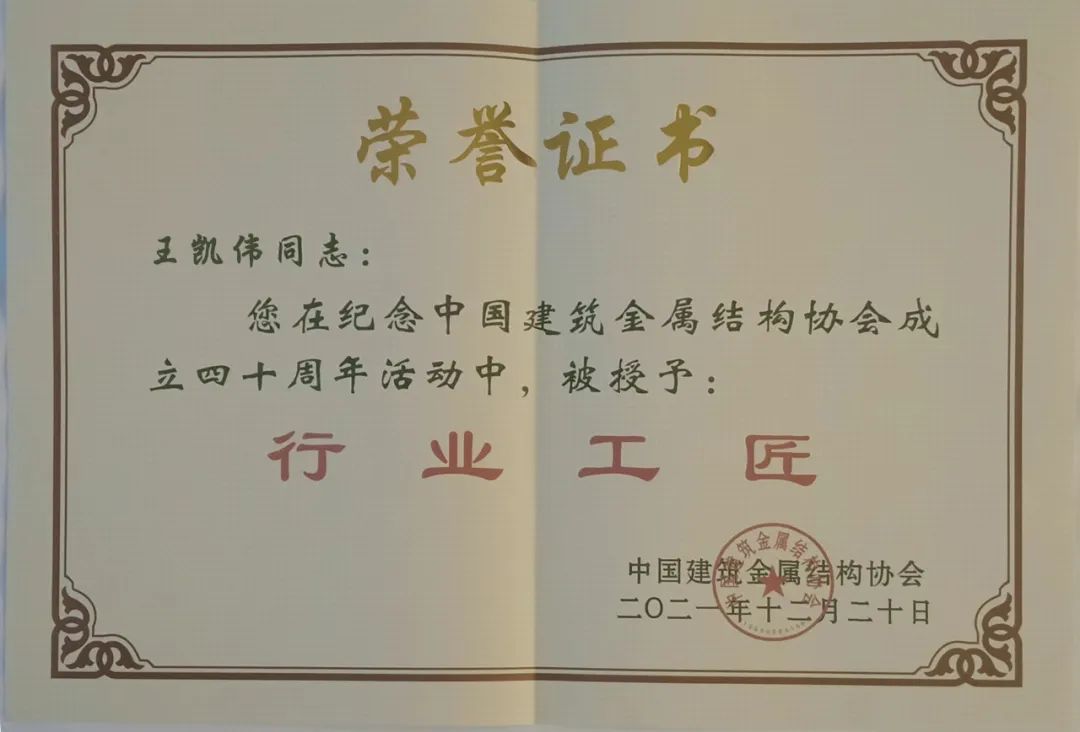 荣誉证书
王凯伟同志：
您在纪念中国建筑金属结构协会成
立四十周年活动中，被授予：
行业工匠
中国建筑金属结构协会
二〇二一年十二月二十日
中国建筑金属结构协会